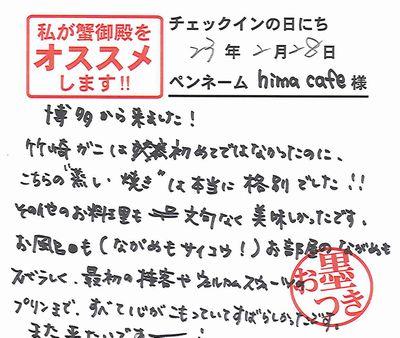 私が蟹御殿を
オススメ
します!!
チェックインの日にち
23年2月28日
ペンネーム hima cafe 様
博多から来ました!
竹崎がには初めてではなかったのに、
こちらの"蒸し焼き"は本当に格別でした!!
その他のお料理も文句なく美味しかったです。
お風呂も(ながめもサイコウ!)お部屋のながめも
スバらしく、最初の接客やウェルカムスウィーツの
プリンまで、すべて心がこもっていてすばらしかったです。
また来たいですー!
お墨つき